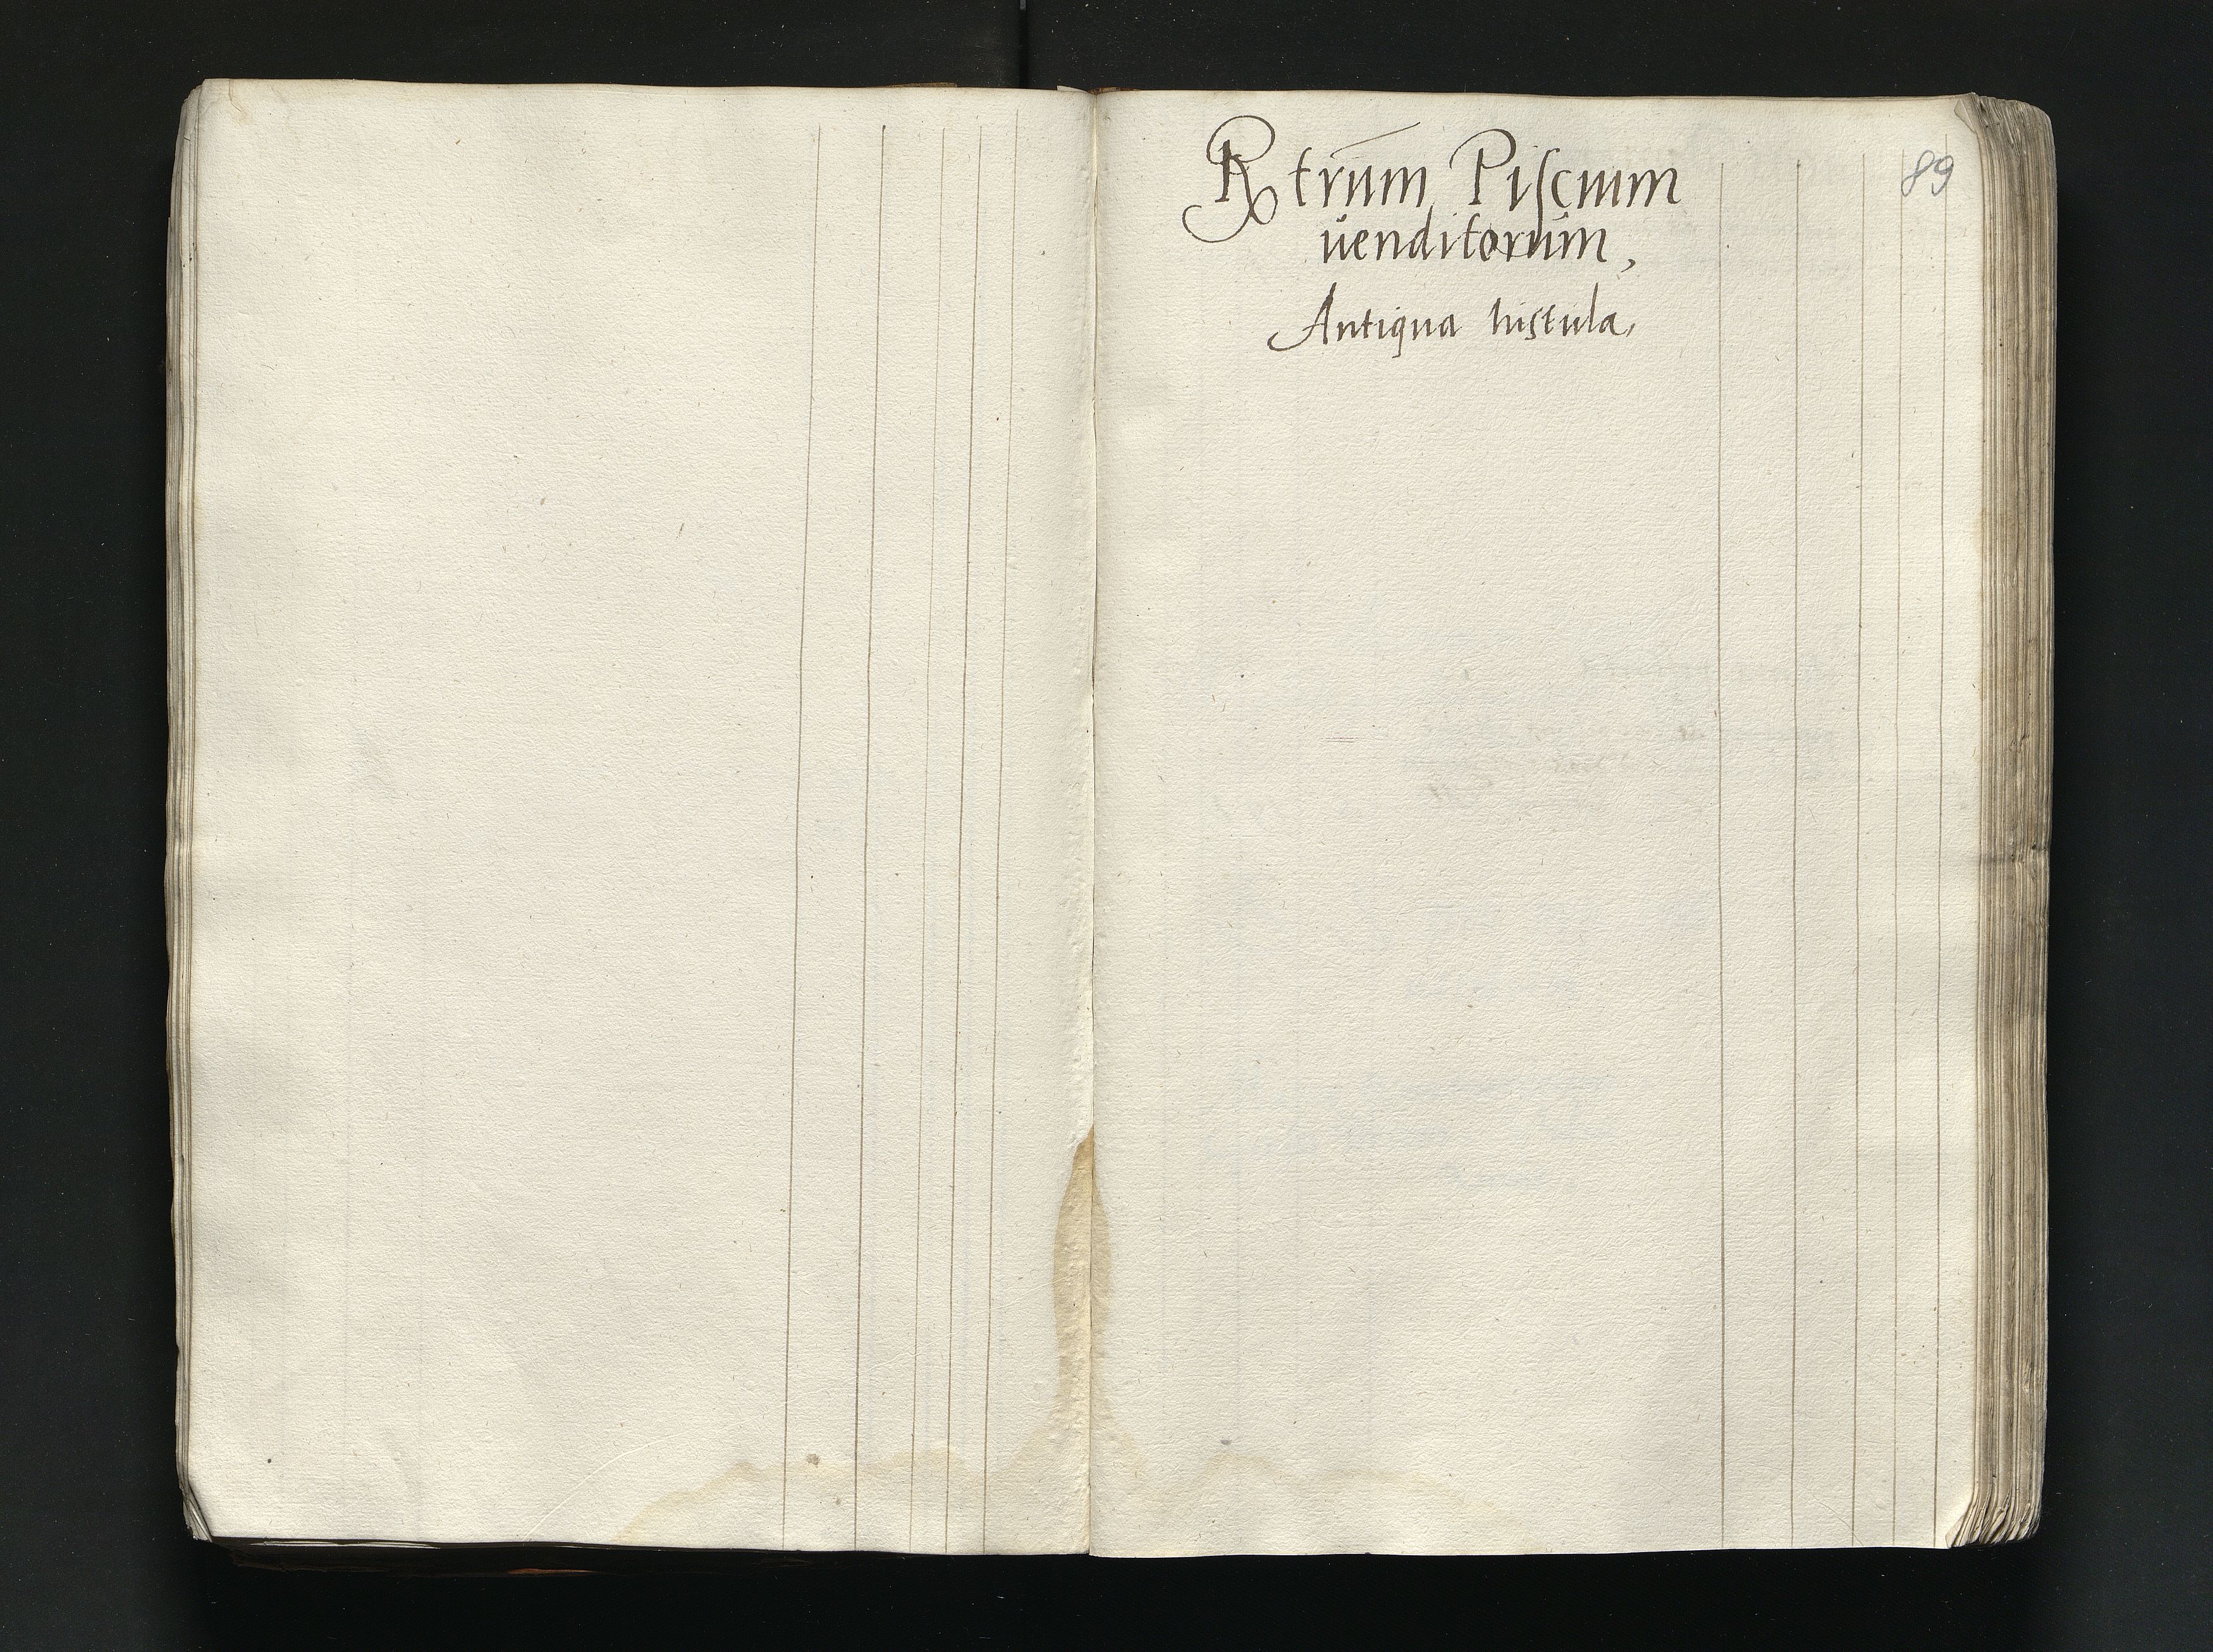 89
Rtrum Piscium
uenditorum,
Antiqua histula,